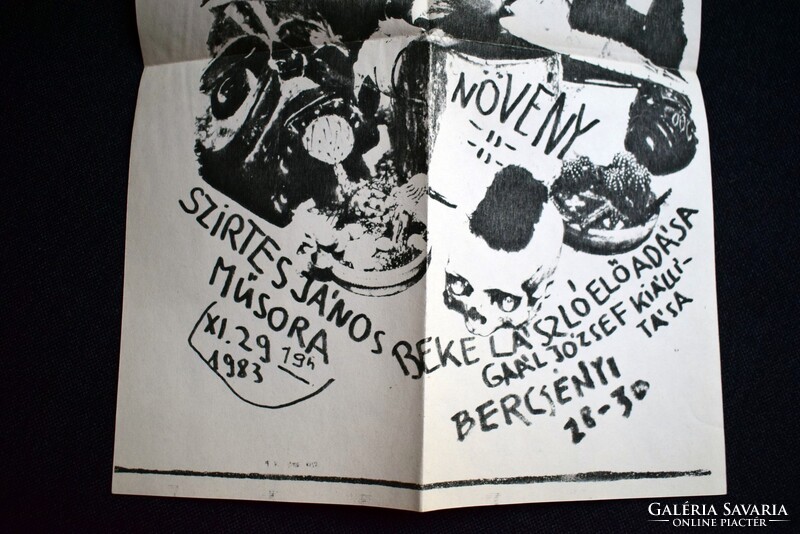 NÖVÉNY
SZIRTES JÁNOS
MŰSORA
XI. 29 19h
1983
BEKE LÁSZLÓ ELŐADÁSA
GAÁL JÓZSEF KIÁLLÍ-
TÁSA
BERCSÉNYI
28-30
GALÉRIA SAVARIA
ONLINE PIACTÉR